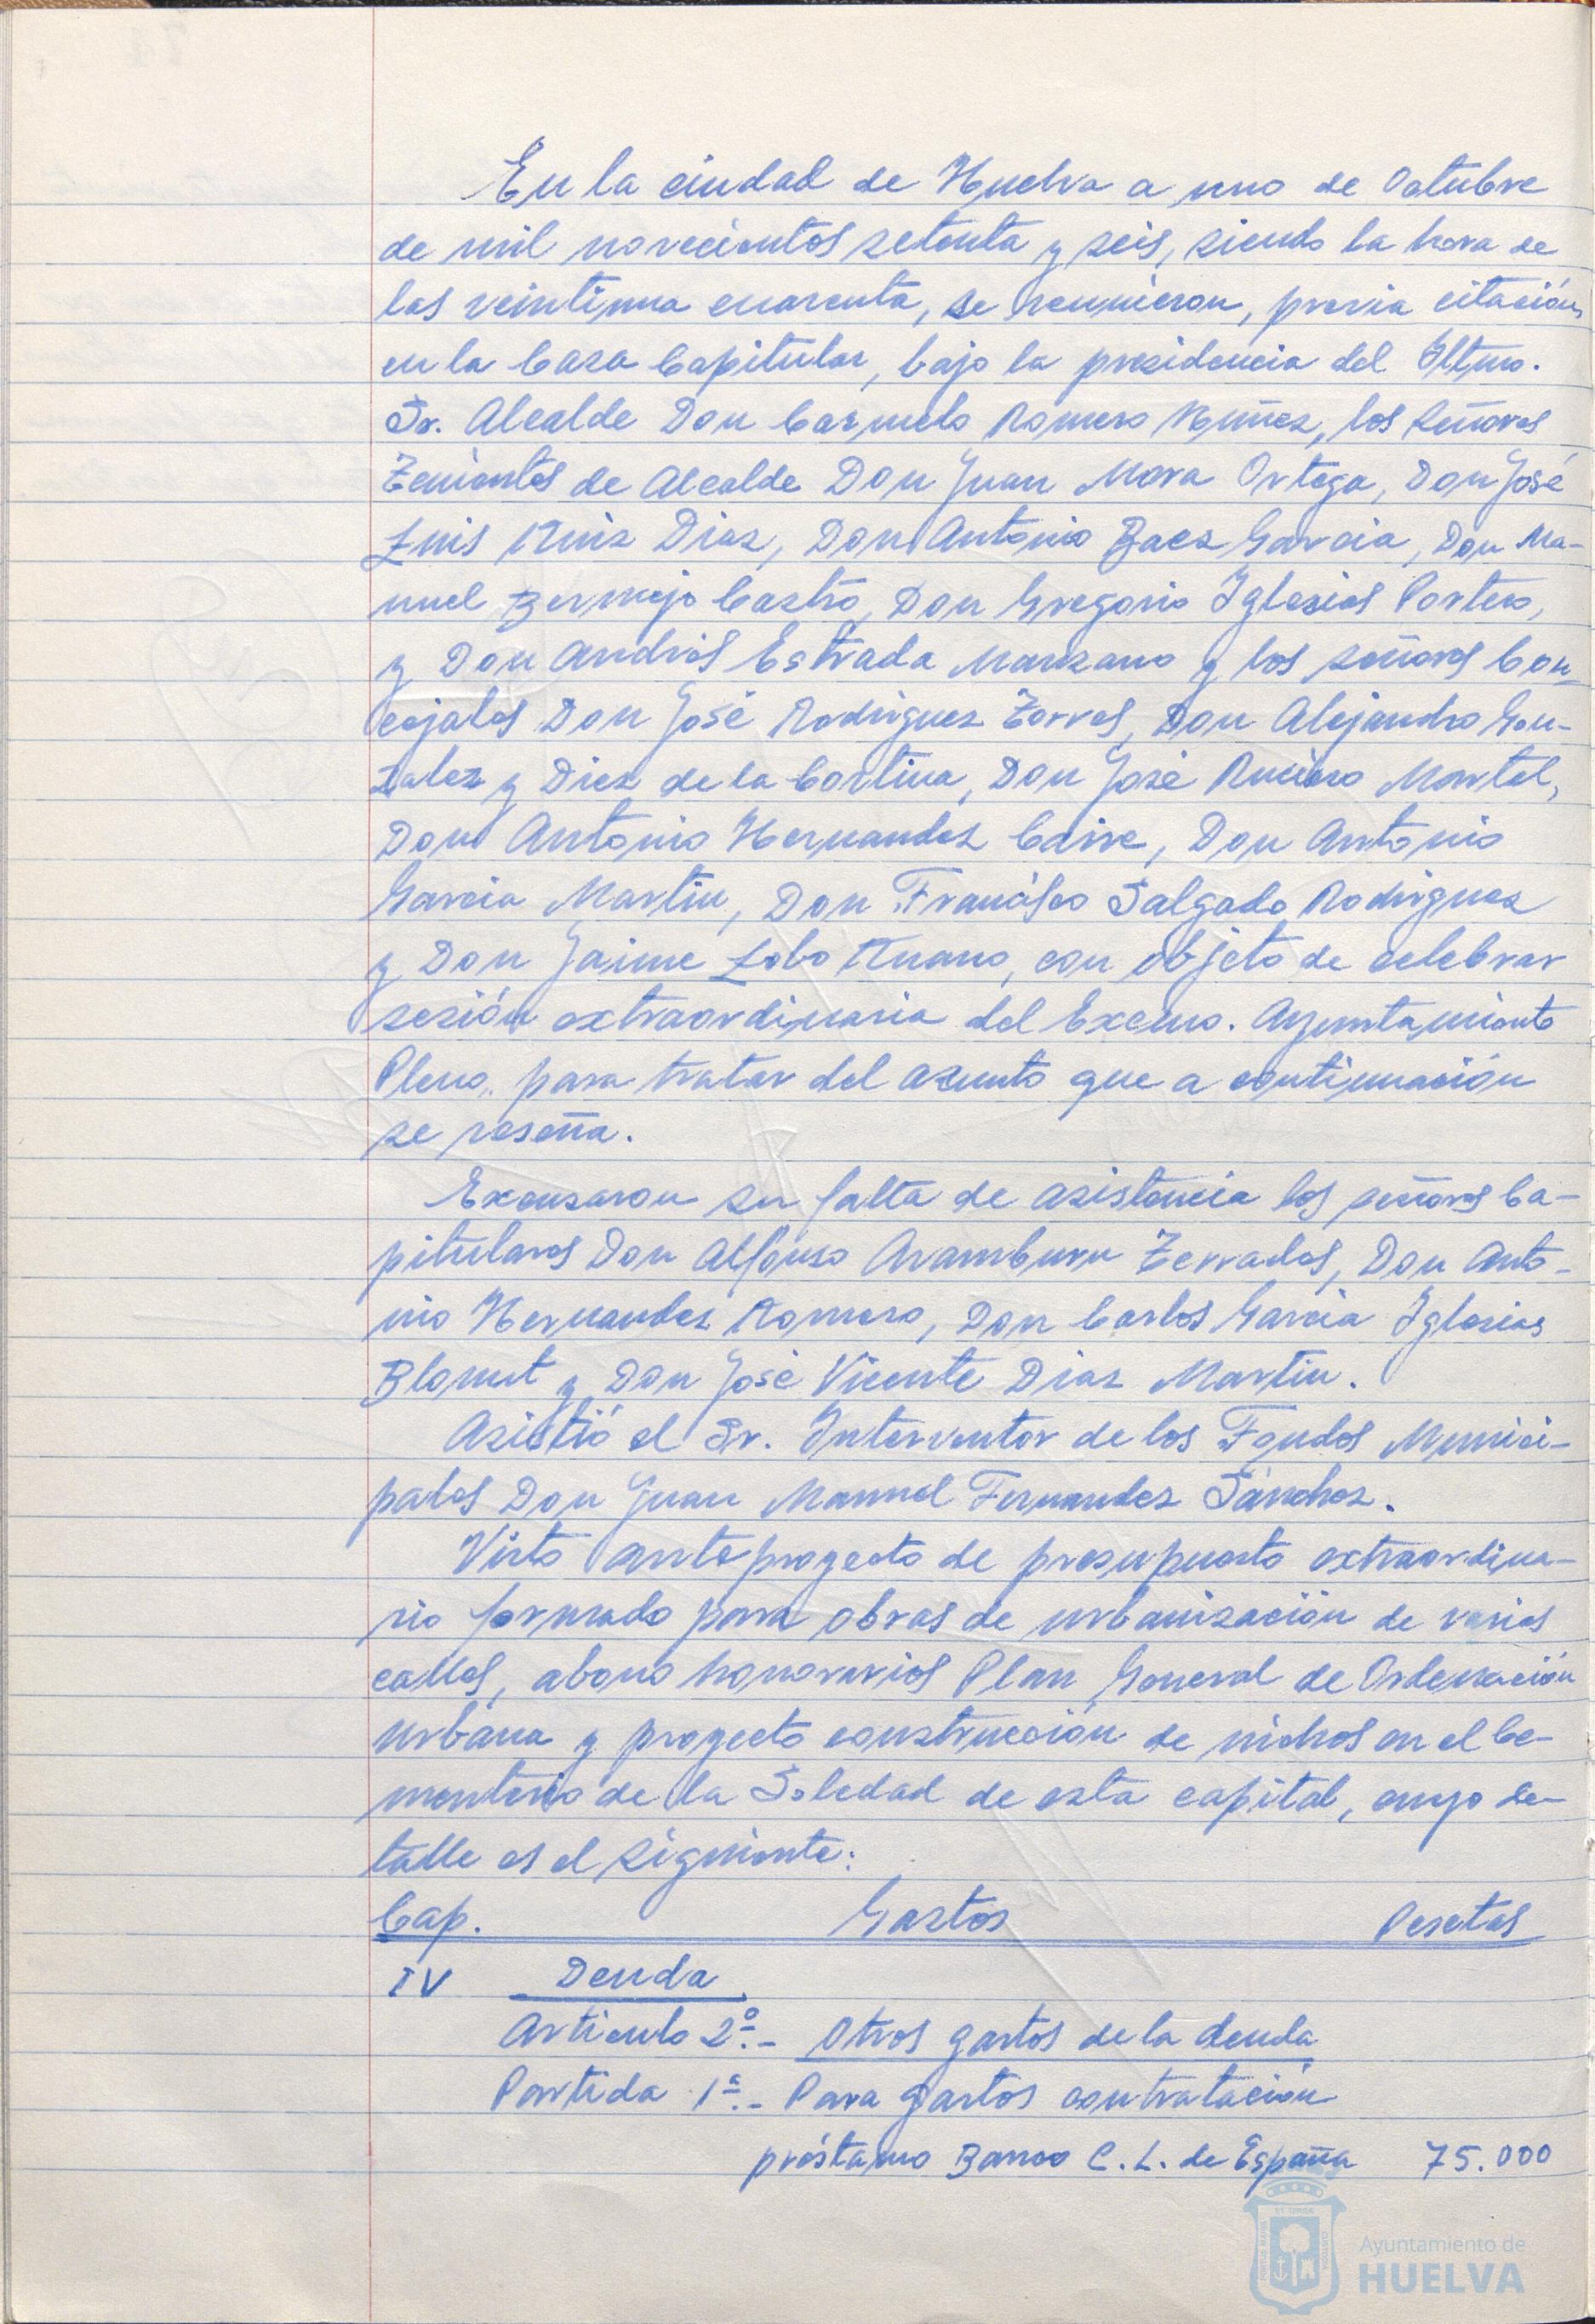 En la ciudad de Huelva a uno de Octubre
de mil novecientos setenta y seis, siendo la hora de
las veintiuna cuarenta, se reunieron, previa citación,
en la Casa Capitular, bajo la presidencia del Iltmo.
Sr. Alcalde Don Carmelo Romero Nuñez, los Señores
Tenientes de Alcalde Don Juan Mora Ortega, Don José
Luis Ruiz Diaz, Don Antonio Baez Garcia, Don Ma-
nuel Bermejo Castro, Don Gregorio Iglesias Portero,
y Don Andrés Estrada Manzano y los señores Con-
cejales Don José Rodriguez Torres, Don Alejandro Gon-
zalez y Diez de la Cortina, Don José Ruciero Martel,
Don Antonio Hernandez Caire, Don Antonio
Garcia Martin, Don Francisco Salgado Rodriguez
y Don Jaime Lobo Ruano, con objeto de celebrar
sesión extraordinaria del Excmo. Ayuntamiento
Pleno, para tratar del asunto que a continuación
se reseña.
Excusaron su falta de asistencia los señores Ca-
pitulares Don Alfonso Aramburu Terrades, Don Anto-
nio Hernandez Romero, Don Carlos Garcia Iglesias
y Don José Vicente Diaz Martin.
Asistió el Sr. Interventor de los Fondos Munici-
pales Don Juan Manuel Fernandez Sánchez.
Visto anteproyecto de presupuesto extraordina-
rio formado para obras de urbanización de varias
calles, abono honorarios Plan General de Ordenación
Urbana y proyecto construcción de nichos en el Ce-
menterio de la Soledad de esta capital, cuyo de-
talle es el siguiente:
Cap. Gastos Pesetas
IV Deuda
Articulo 2º.- Otros gastos de la deuda
Partida 1ª.- Para gastos contratación
préstamo Banco C. L. de España 75.000
Ayuntamiento de
HUELVA